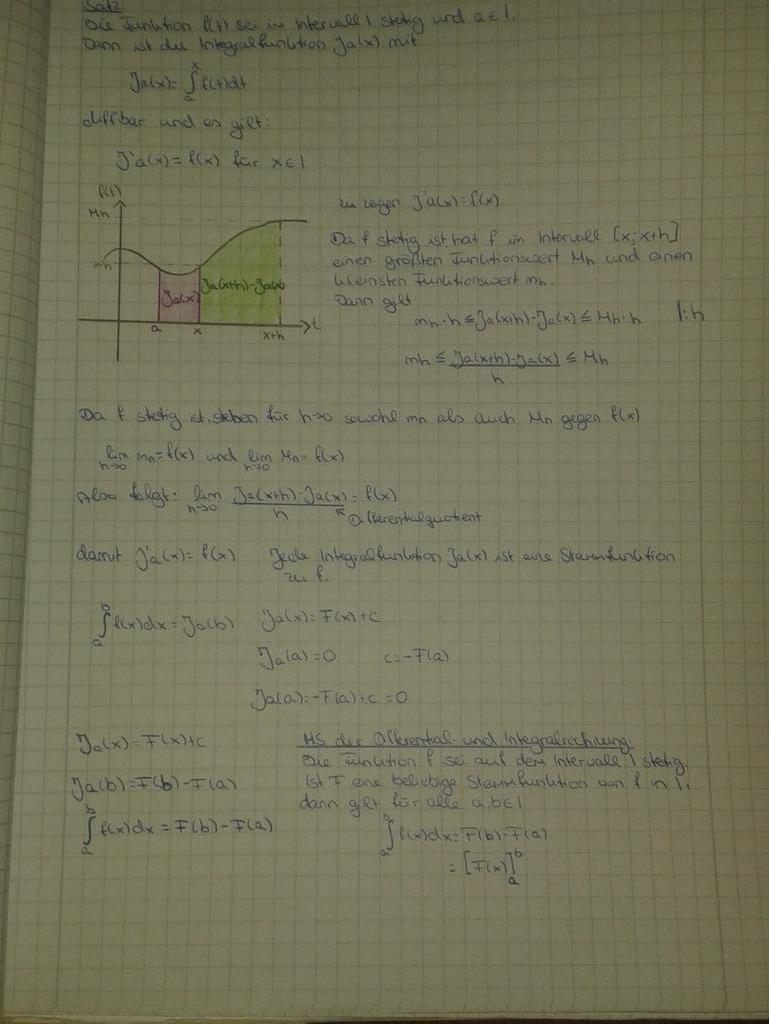 Satz
Die Funktion f(t) sei im Intervall I stetig und a∈I.
Dann ist die Integralfunktion Ja(x) mit
Ja(x)=∫ₐˣ f(t)dt
diffbar und es gilt:
J'a(x)=f(x) für x∈I
f(t)
Mh
mh
Ja(x)
Ja(x+h)-Ja(x)
a
x
x+h
t
zu zeigen J'a(x)=f(x)
Da f stetig ist hat f im Intervall [x;x+h]
einen größten Funktionswert Mh und einen
kleinsten Funktionswert mh.
Dann gilt
mh·h≤Ja(x+h)-Ja(x)≤Mh·h |:h
mh≤(Ja(x+h)-Ja(x))/h≤Mh
Da f stetig ist, streben für h→0 sowohl mh als auch Mh gegen f(x)
lim h→0 mh=f(x) und lim h→0 Mh=f(x)
Also folgt: lim h→0 (Ja(x+h)-Ja(x))/h=f(x)
Differentialquotient
damit J'a(x)=f(x) Jede Integralfunktion Ja(x) ist eine Stammfunktion
zu f.
∫ₐᵇ f(x)dx=Ja(b) Ja(x)=F(x)+c
Ja(a)=0 c=-F(a)
Ja(a)=-F(a)+c=0
Ja(x)=F(x)+c
Ja(b)=F(b)-F(a)
∫ₐᵇ f(x)dx=F(b)-F(a)
HS der Differential- und Integralrechnung:
Die Funktion f sei auf dem Intervall I stetig.
Ist F eine beliebige Stammfunktion von f in I,
dann gilt für alle a,b∈I
∫ₐᵇ f(x)dx=F(b)-F(a)
=[F(x)]ₐᵇ